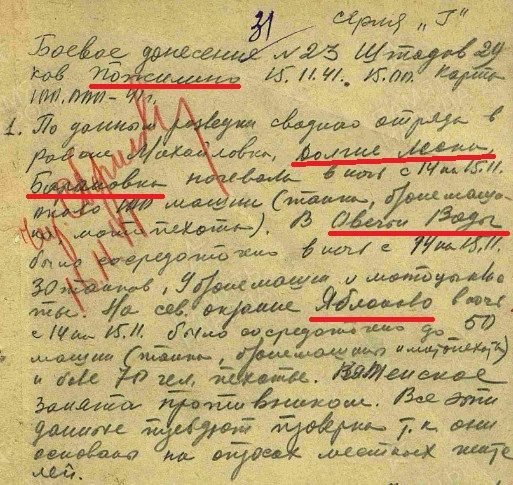 31 серия "Г"
Боевое донесение N 23 Штадов 29
ков Пожилино 15.11.41. 15.00. Карта
100.000-41г.
1. По данным разведки сводного отряда в
районе Михайловка, Долгие Лески,
Барановка ночевали в ночь с 14 на 15.11.
около 100 машин (танки, бронемаши-
ны, мотопехота). В Овечьи Воды
было сосредоточено в ночь с 14 на 15.11.
30 танков, 9 бронемашин и мотоцикли-
сты. На сев. окраине Яблоково в ночь
с 14 на 15.11. было сосредоточено до 50
машин (танки, бронемашины и мотопехота)
и более 70 чел. пехоты.
занята противником. Все эти
данные требуют проверки т.к. они
основаны на опросах местных жите
лей.